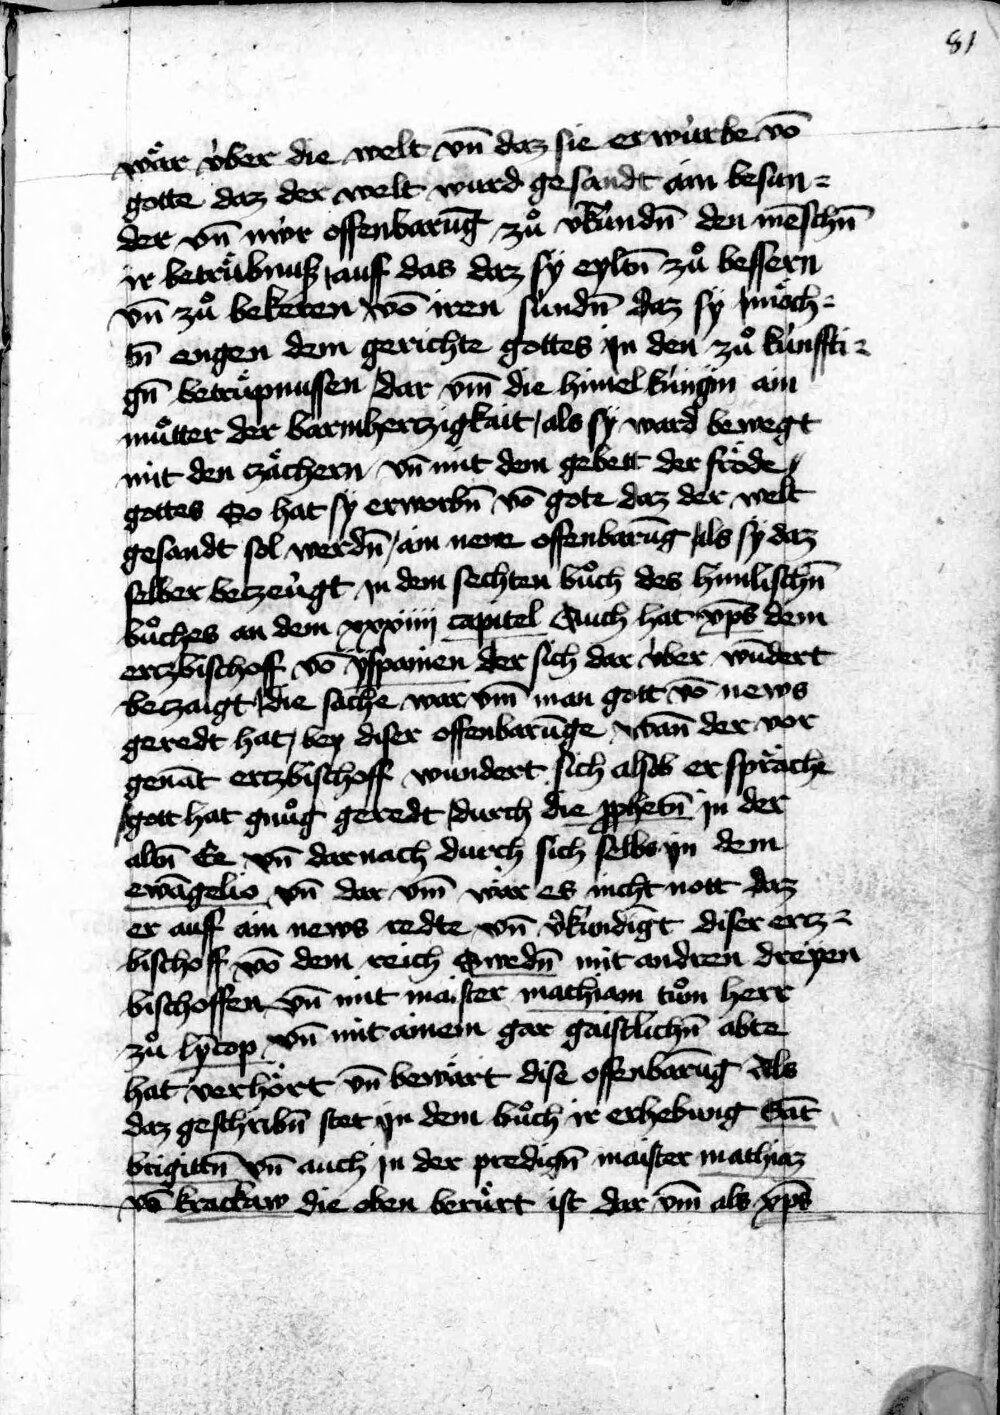 81
wär v̈ber die welt vn̄ daz sie erwürbe vō
gotte daz der welt wurd gesandt ain besun⸗
der vn̄ nẅr offenbarūg zů v̄kündn̄ den mēschn̄
ir betrübnuß / auf das daz sy eyltn̄ zů bessern
vn̄ zů bekeren vō iren sündn̄ daz sy möch⸗
tn̄ engen dem gerichte gottes in den zů künffti⸗
gn̄ betrüpnussen / dar vm̄ die himel küngin ain
můtter der barmhertzigkait / als sy ward bewegt
mit den zächern vn̄ mit dem gebett der fröde
gottes So hat sy erworbn̄ vō gote daz der welt
gesandt sol werdn̄ / ain newe offenbarūg als sy daz
selber betzeügt in dem sechten bůch des himlischn̄
bůches an dem xxxiiii capitel Auch hat xp̄s dem
ertzbischoff vō yspanien der sich dar v̈ber wūdert
betzaigt / die sache war vm̄ man gott vō news
geredt hat / bey diser offenbarūge wan̄ der vor
genāt ertzbischoff wundert sich als ob er spräche
gott hat gnůg geredt / durch die p̄phetn̄ in der
altn̄ Ee vn̄ darnach durch sich selbs in dem
ewāgelio vn̄ dar vm̄ wär es nicht nott daz
er auf ain news redte vn̄ v̄kündigt diser ertz⸗
bischoff vō dem reich Swedn̄ mit andren dreyen
bischoffen vn̄ mit maister mathiam tům herr
zů lȳcop vn̄ mit ainem gar gaistlichn̄ abte
hat verhört vn̄ bewärt dise offenbarūg Als
daz geschribn̄ stet in dem bůch ir erhebung Sāt
brigittn̄ vn̄ auch in der predign̄ maister mathiaz
vō krackaw die oben berürt ist dar vm̄ als xp̄s